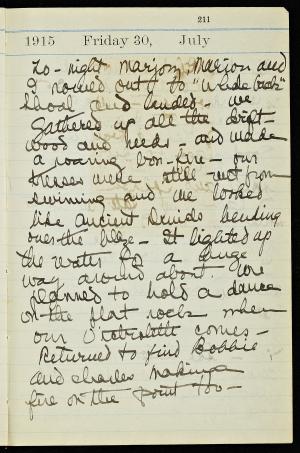 211
1915 Friday 30, July
To-night Marjory, Marion and
I rowed out to "
Shoal and landed - we
gathered up all the drift
wood and reeds - and made
a roaring bon-fire - our
tresses were still wet from
swimming and we looked
like Ancient Druids bending
over the blaze - It lighted up
the water for a huge
way around about. We
planned to hold a dance
on the flat rocks when
our comes -
Returned to find Bobbie
and Charles making a
fire on the point too -